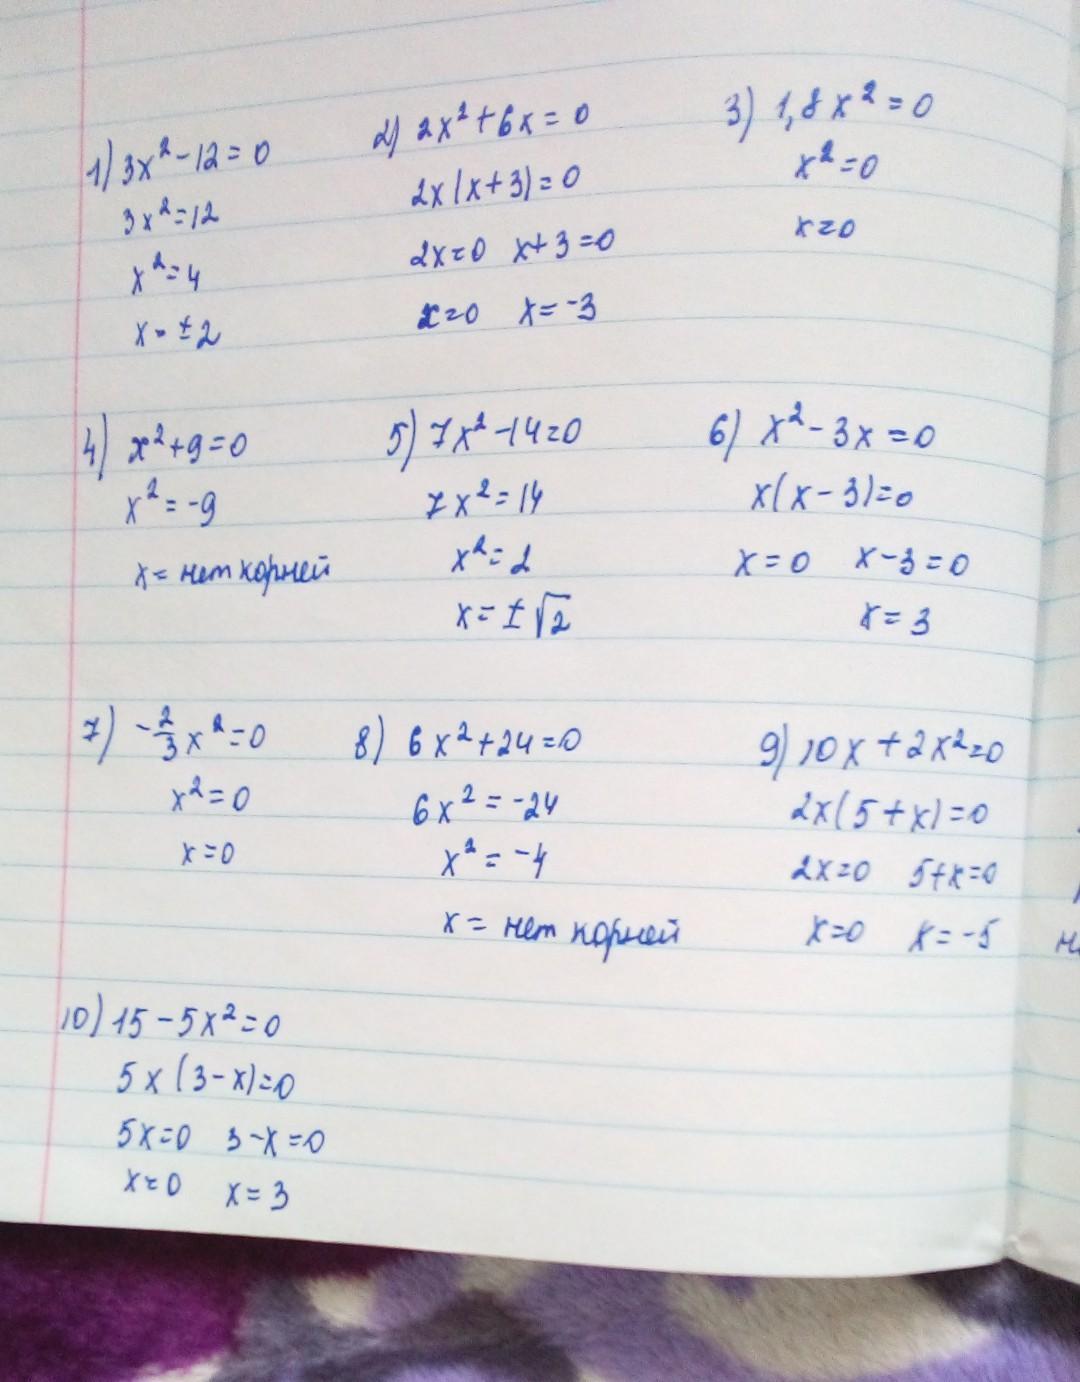 1) 3x²-12=0
3x²=12
x²=4
x=±2
2) 2x²+6x=0
2x(x+3)=0
2x=0 x+3=0
x=0 x=-3
3) 1,8x²=0
x²=0
x=0
4) x²+9=0
x²=-9
x= нет корней
5) 7x²-14=0
7x²=14
x²=2
x=±√2
6) x²-3x=0
x(x-3)=0
x=0 x-3=0
x=3
7) -2/3x²=0
x²=0
x=0
8) 6x²+24=0
6x²=-24
x²=-4
x= нет корней
9) 10x+2x²=0
2x(5+x)=0
2x=0 5+x=0
x=0 x=-5
10) 15-5x²=0
5x(3-x)=0
5x=0 3-x=0
x=0 x=3